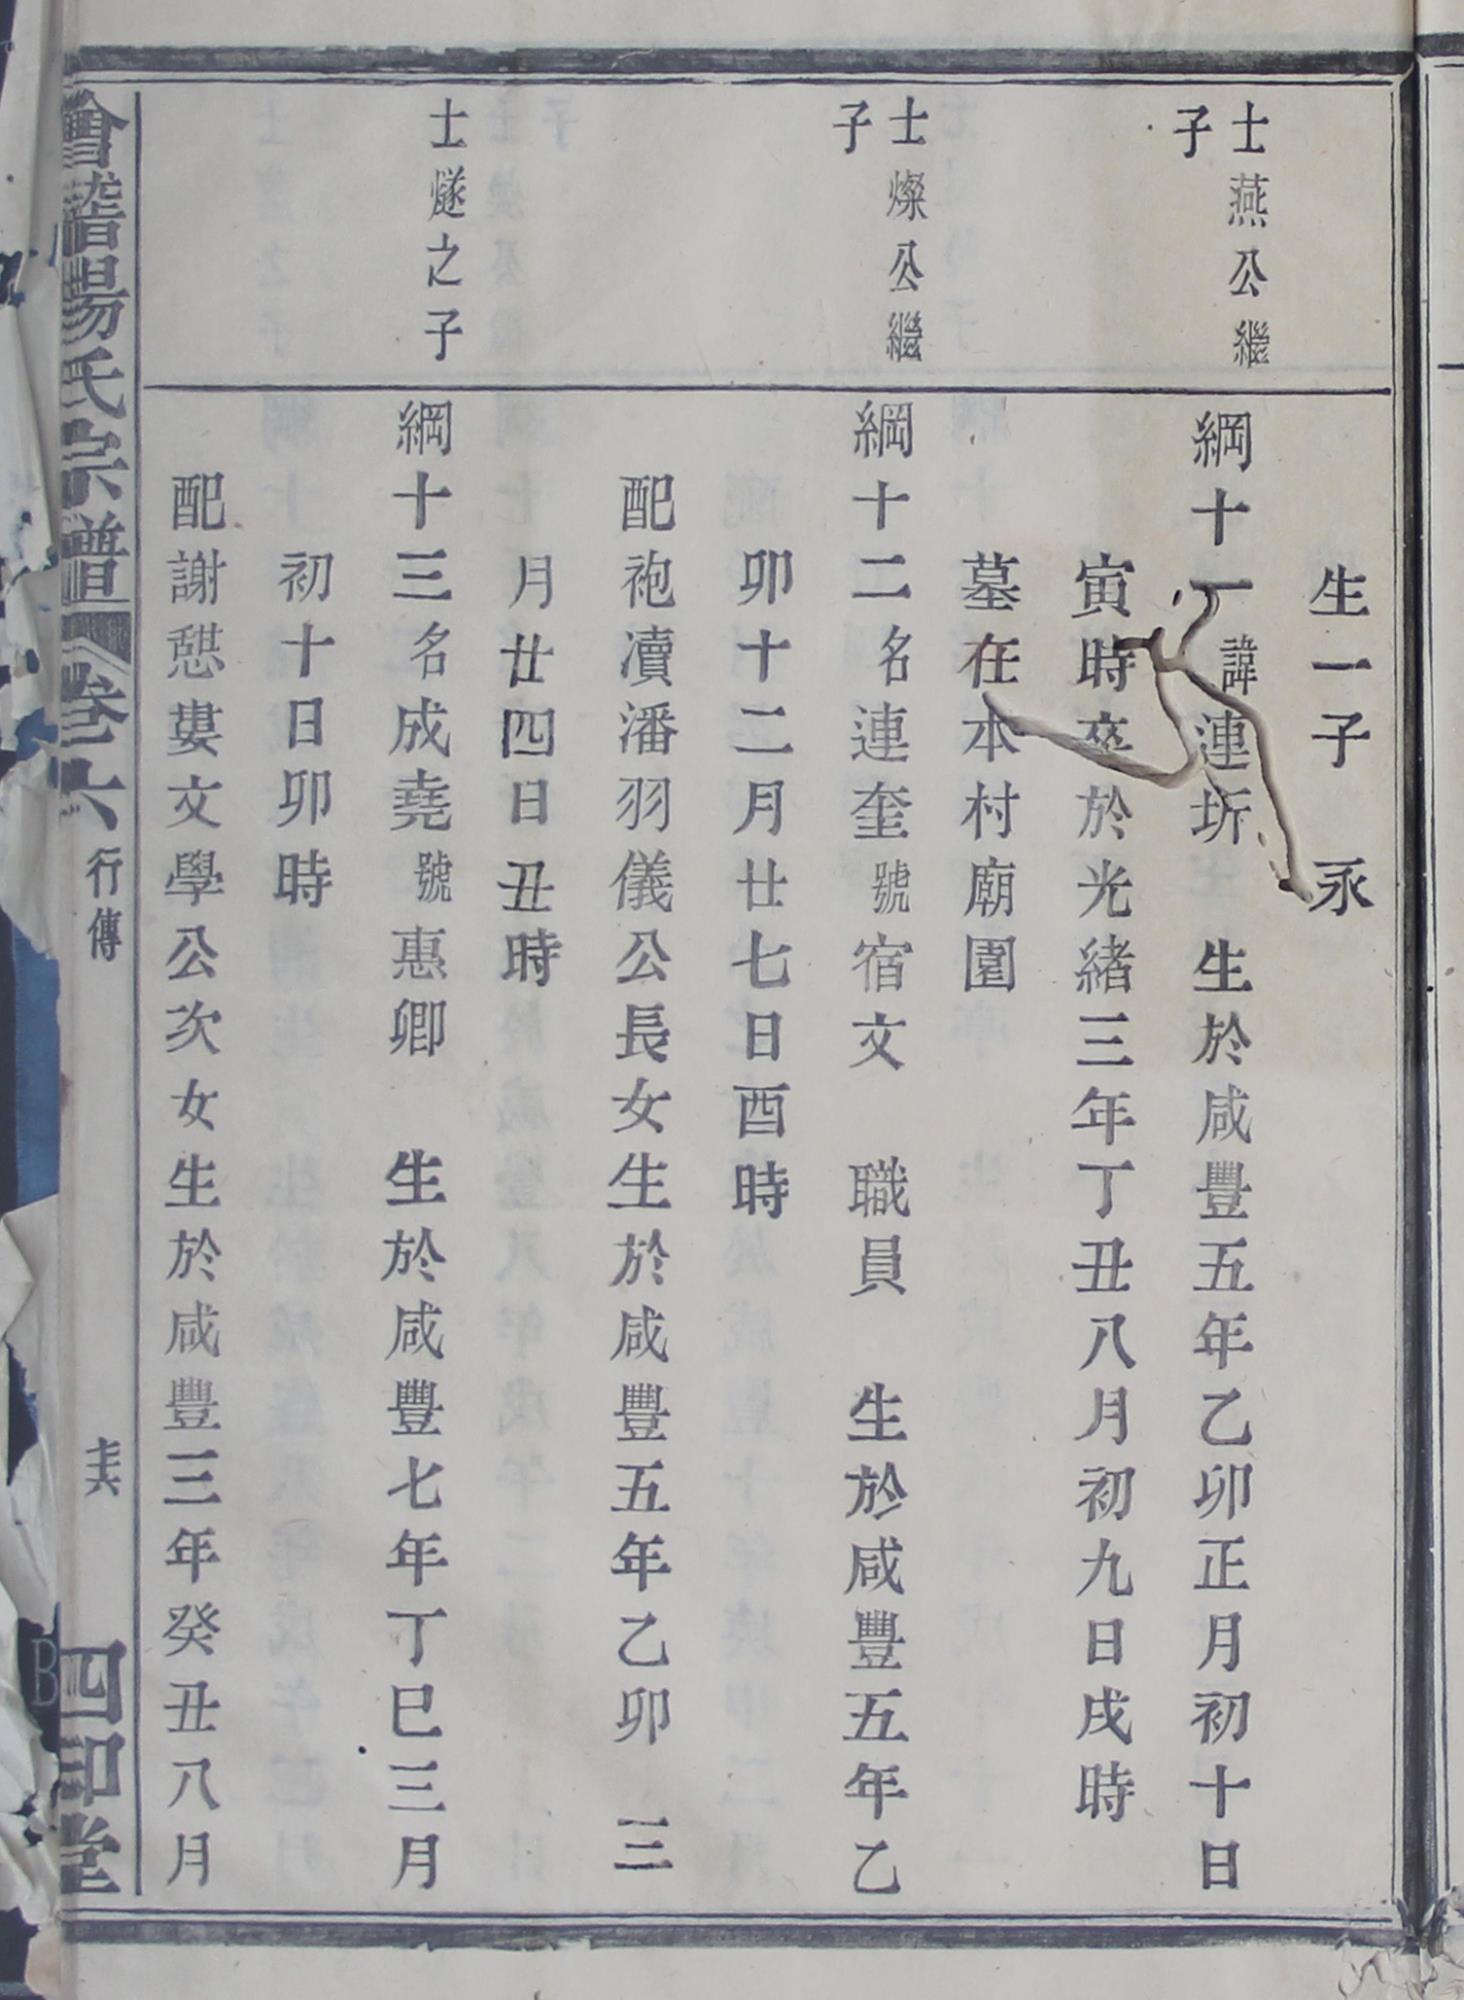 生一子 永
士燕公繼
子
綱十一諱連圻 生於咸豐五年乙卯正月初十日
寅時卒於光緒三年丁丑八月初九日戌時
墓在本村廟園
士燦公繼
子
綱十二名連奎號宿文 職員 生於咸豐五年乙
卯十二月廿七日酉時
配袍瀆潘羽儀公長女生於咸豐五年乙卯 三
月廿四日丑時
士燧之子
綱十三名成堯號惠卿 生於咸豐七年丁巳三月
初十日卯時
配謝憩婁文學公次女生於咸豐三年癸丑八月
會稽楊氏宗譜 卷六 行傳 四印堂
B